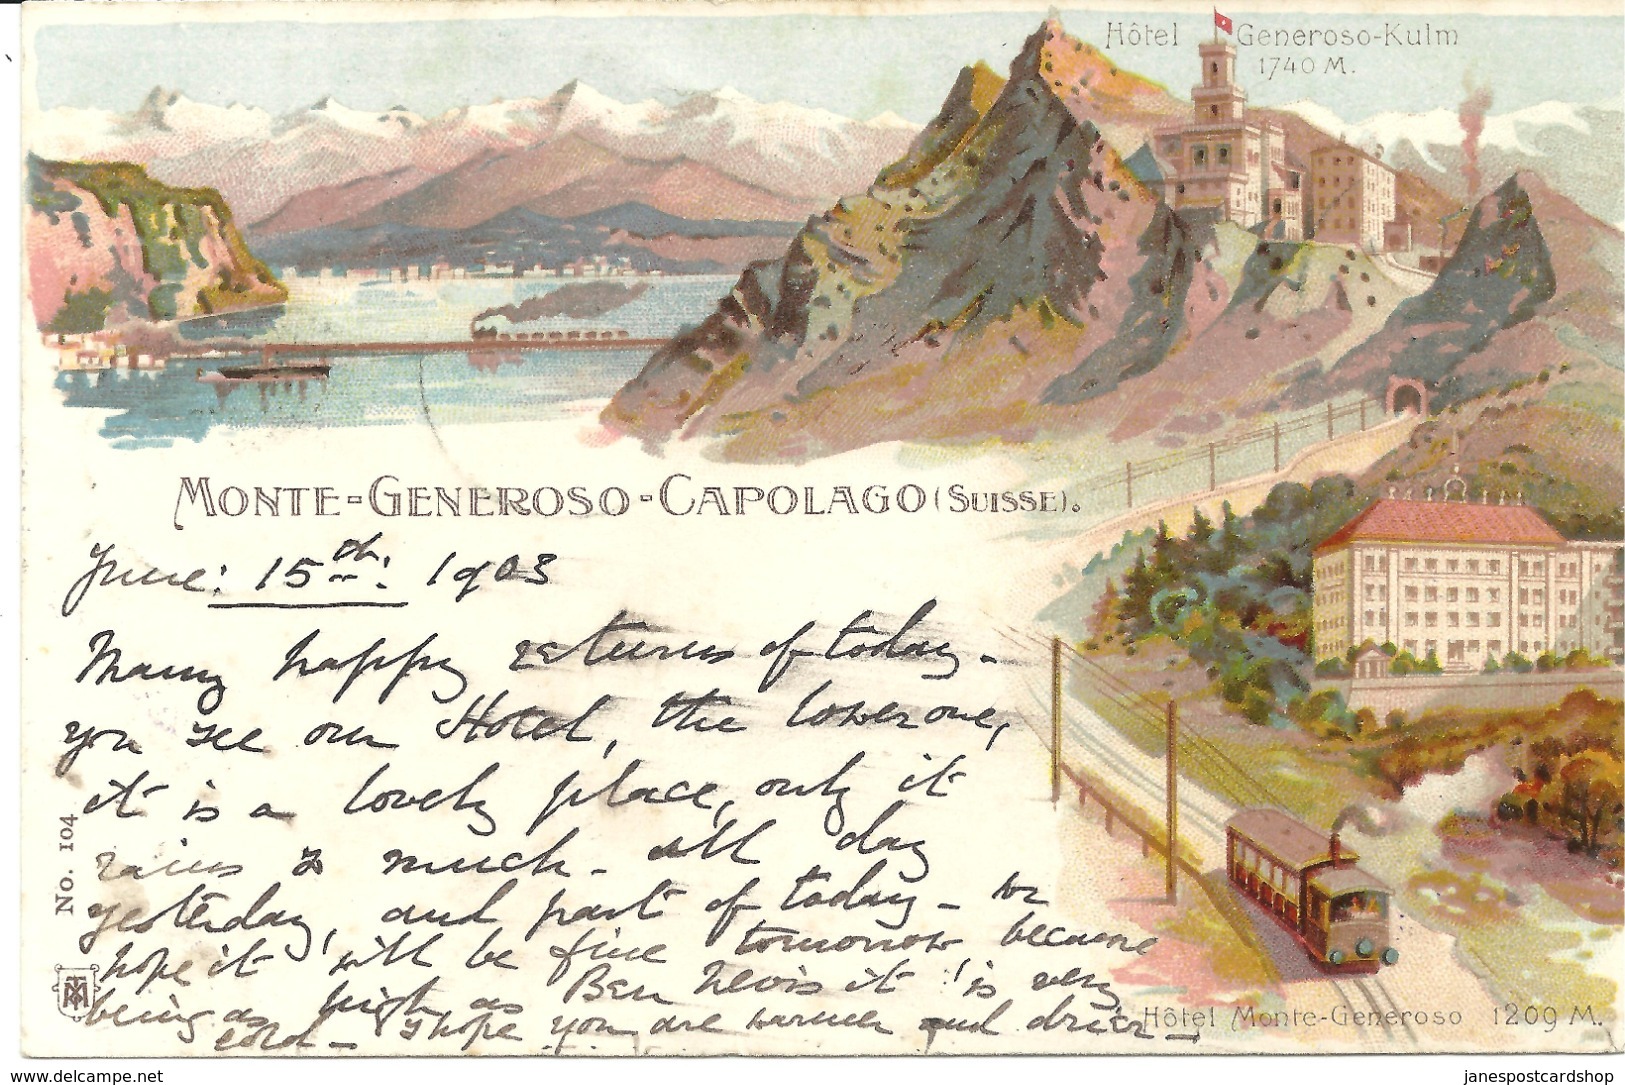 Hôtel Generoso-Kulm
1740 M.
MONTE-GENEROSO-CAPOLAGO (SUISSE).
June: 15th: 1903
Many happy returns of today -
you see our Hotel, the lower one,
it is a lovely place, only it
rains so much - all day
yesterday, and part of today - we
hope it will be fine tomorrow because
being as high as Ben Nevis it is very
cold - I hope you are warmer and drier -
No. 104
Hôtel Monte-Generoso 1209 M.
www.delcampe.net
janespostcardshop